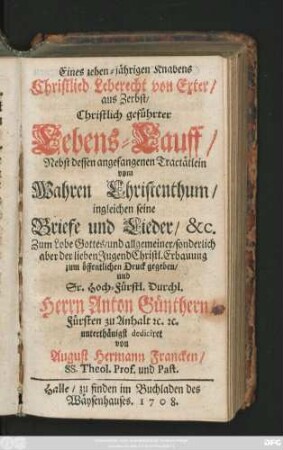 Eines zehen-jährigen Knabens
Christlieb Leberecht von Exter/
aus Zerbst/
Christlich geführter
Lebens-Lauff/
Nebst dessen angefangenen Tractätlein
vom
Wahren Christenthum/
ingleichen seine
Briefe und Lieder/ &c.
Zum Lobe Gottes/ und allgemeiner/ sonderlich
aber der lieben Jugend Christl. Erbauung
zum öffentlichen Druck gegeben/
und
Sr. Hoch-Fürstl. Durchl.
Herrn Anton Günthern/
Fürsten zu Anhalt ꝛc. ꝛc.
unterthänigst dediciret
von
August Hermann Francken/
SS. Theol. Prof. und Past.
Halle/ zu finden im Buchladen des
Wäysenhauses. 1708.